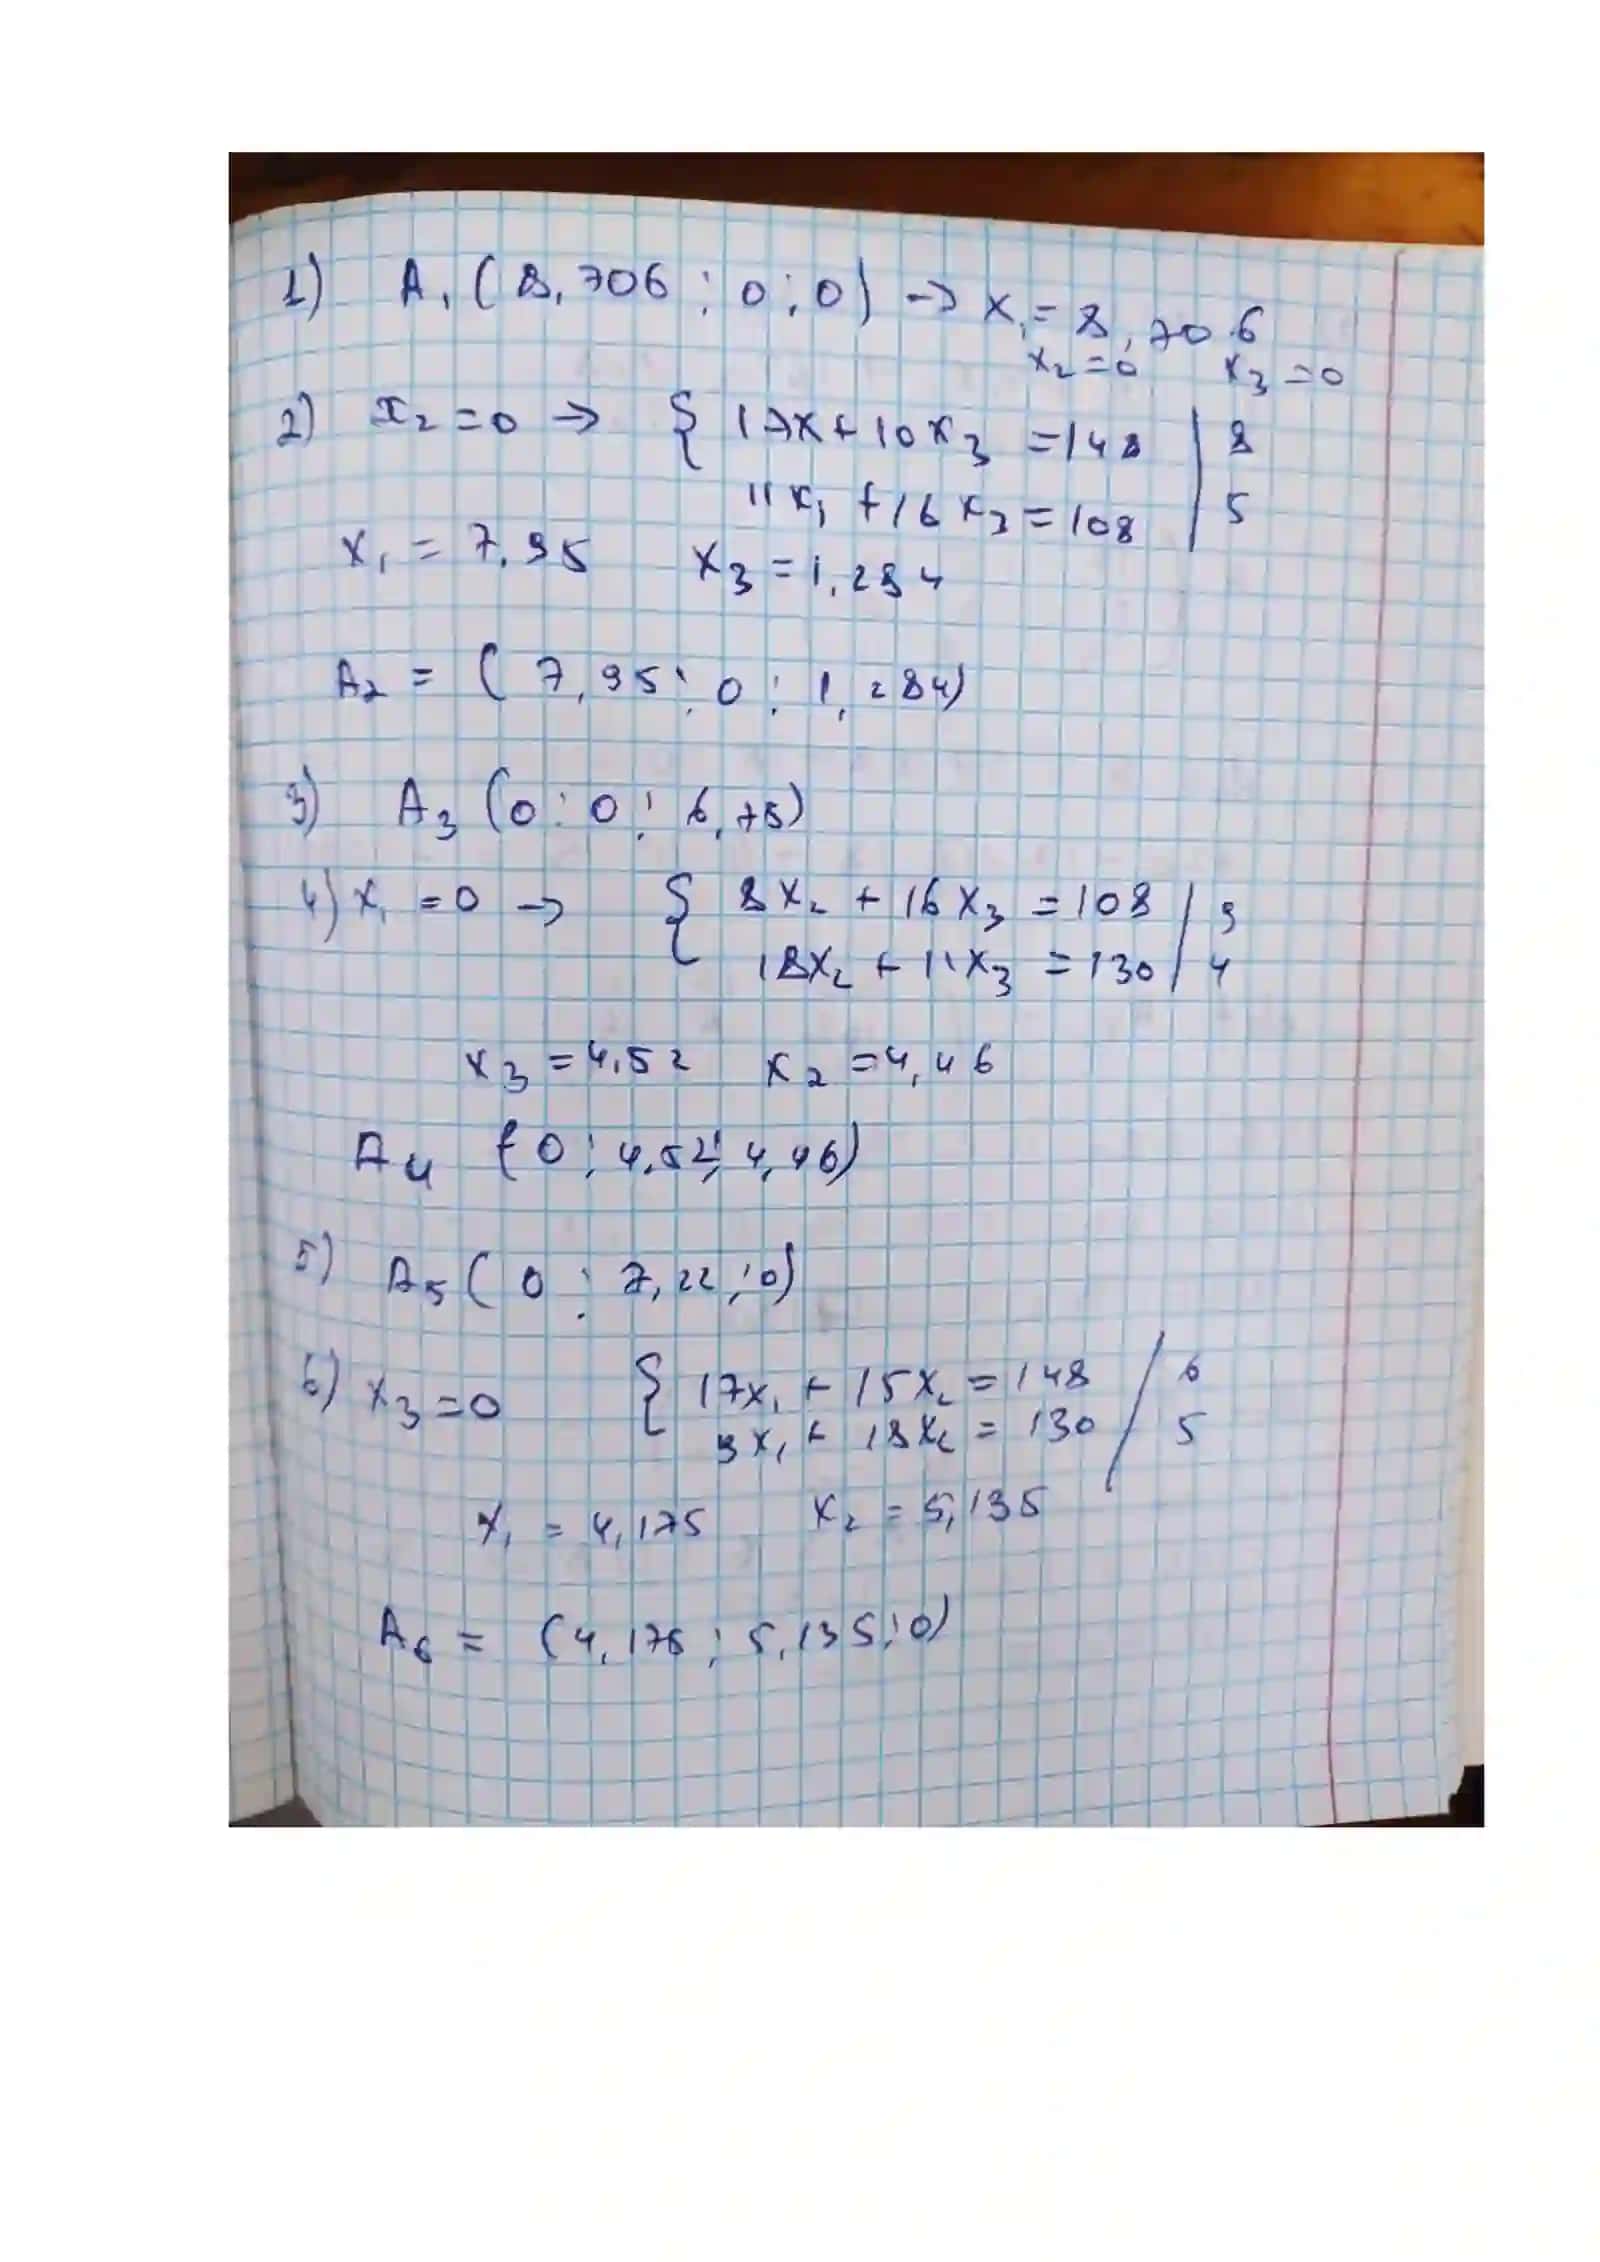 1) A₁ (8,706 ; 0 ; 0) → x₁ = 8,706
x₂ = 0 x₃ = 0
2) x₂ = 0 → { 17x + 10x₃ = 148 | 8
11x₁ + 16x₃ = 108 | 5
x₁ = 7,95 x₃ = 1,284
A₂ = (7,95 ; 0 ; 1,284)
3) A₃ (0 ; 0 ; 6,75)
4) x₁ = 0 → { 8x₂ + 16x₃ = 108 | 9
18x₂ + 11x₃ = 130 | 4
x₃ = 4,52 x₂ = 4,46
A₄ (0 ; 4,52 ; 4,46)
5) A₅ (0 ; 7,22 ; 0)
6) x₃ = 0 { 17x₁ + 15x₂ = 148 / 6
9x₁ + 18x₂ = 130 / 5
x₁ = 4,175 x₂ = 5,135
A₆ = (4,175 ; 5,135 ; 0)